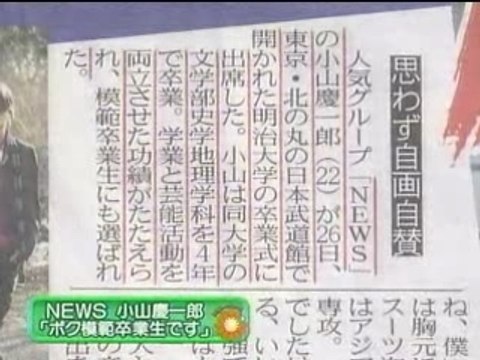 思わず自画自賛
人気グループ「NEWS」
の小山慶一郎(22)が26日、
東京・北の丸の日本武道館で
開かれた明治大学の卒業式に
出席した。小山は同大学の
文学部史学地理学科を4年
で卒業。学業と芸能活動を
両立させた功績がたたえら
れ、模範卒業生にも選ばれ
た。
ね、僕
は胸元
スーツ
はアジ
専攻。
でした
る、い
NEWS 小山慶一郎
「ボク模範卒業生です」